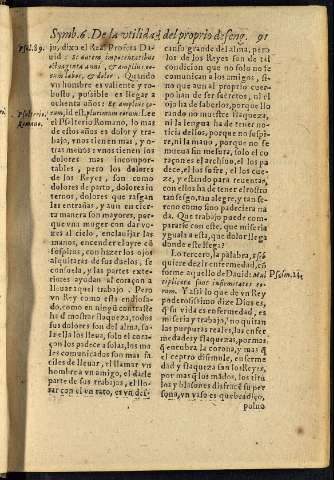 Symb. 6. De la vtilidad, del proprio deseng. 91
Psal. 89.
jo, dixo el Real Profeta Da-
uid: Si autem in potentatibus
octuaginta anni, & amplius eo-
rum labor, & dolor. Quando
vn hombre es valiente y ro-
busto, possible es llegar a
ochenta años: Et amplius eo-
Psalterio Romano.
rum, id est, plurimum eorum. Lee
el Psalterio Romano, lo mas
de estos años es dolor y tra-
bajo, vnos tienen mas, y o-
tros menos: vnos tienen los
dolores mas incompor-
tables, pero los dolores
de los Reyes, son como
dolores de parto, dolores in
ternos, dolores que rasgan
las entrañas, y aun en cier-
ta manera son mayores, por-
que vna muger con dar vo-
zes al cielo, enclauijar las
manos, encender el ayre cõ
sospiros, con hazer los ojos
alquitaras de sus duelos, se
consuela, y las partes exte-
riores ayudan al coraçon a
lleuar aquel trabajo. Pero
vn Rey como està endiosa-
do, como en ningũ contraste
ha d mostrar flaqueza, todos
sus dolores son del alma, so-
la ella los lleua, solo el cora-
çon los padece a solas, los ma
les comunicados son mas fa-
ciles de lleuar, el llamar vn
hombre a vn amigo, el darle
parte de sus trabajos, el llo-
rar con el vn rato, es vn des-
canso grande del alma, pero
los de los Reyes son de tal
condicion que no solo no se
comunican a los amigos, si-
no que aun al proprio cuer-
po han de ser secretos, ni el
ojo ha de saberlos, porque llo
rando no muestre flaqueza,
ni la lengua ha de tener no-
ticia dellos, porque no suspi-
re, ni la mano, porque no se
mueua sin mesura, solo el co
raçon es el archiuo, el los pa
dece, el los sufre, el los cue-
ze, y estando para rebentar,
con ellos ha de tener el rostro
tan sesgo, tan alegre, y tan se-
reno como sino padeciera na
da. Que trabajo puede com-
pararse con este, que miseria
yguala a esta, que dolor llega
donde este llega?
Lo tercero, la palabra,
quiere dezir enfermedad, cõ
Psalm. 24.
forme aquello de Dauid: Mul
tiplicatæ sunt infirmitates eo-
rum. Y assi lo que de vn Rey
poderosissimo dize Dios es,
q̃ su vida es enfermedad, es
miseria y trabajo, no quitan
las purpuras reales, las enfer
medades y flaquezas, por mas
q̃ encubra la corona, y mas q̃
el ceptro dissimule, enferme
dad y flaqueza san los Reyes,
por mas q̃ los mãdos, los titu
los y blasones disfrace su per
sona, vn vaso es quebradiço,